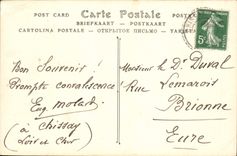 POST CARD Carte Postale POSTKARTE
BRIEFKAART POSTKAART
CARTOLINA POSTALE — ОТКРЫТОЕ ПИСЬМО —
5c
Bon Souvenir !
Prompte convalescence
Eug. Molard
(à Chissay
Loir et Cher
Monsieur le Dr Duval
Rue Lemarois
Brionne
Eure